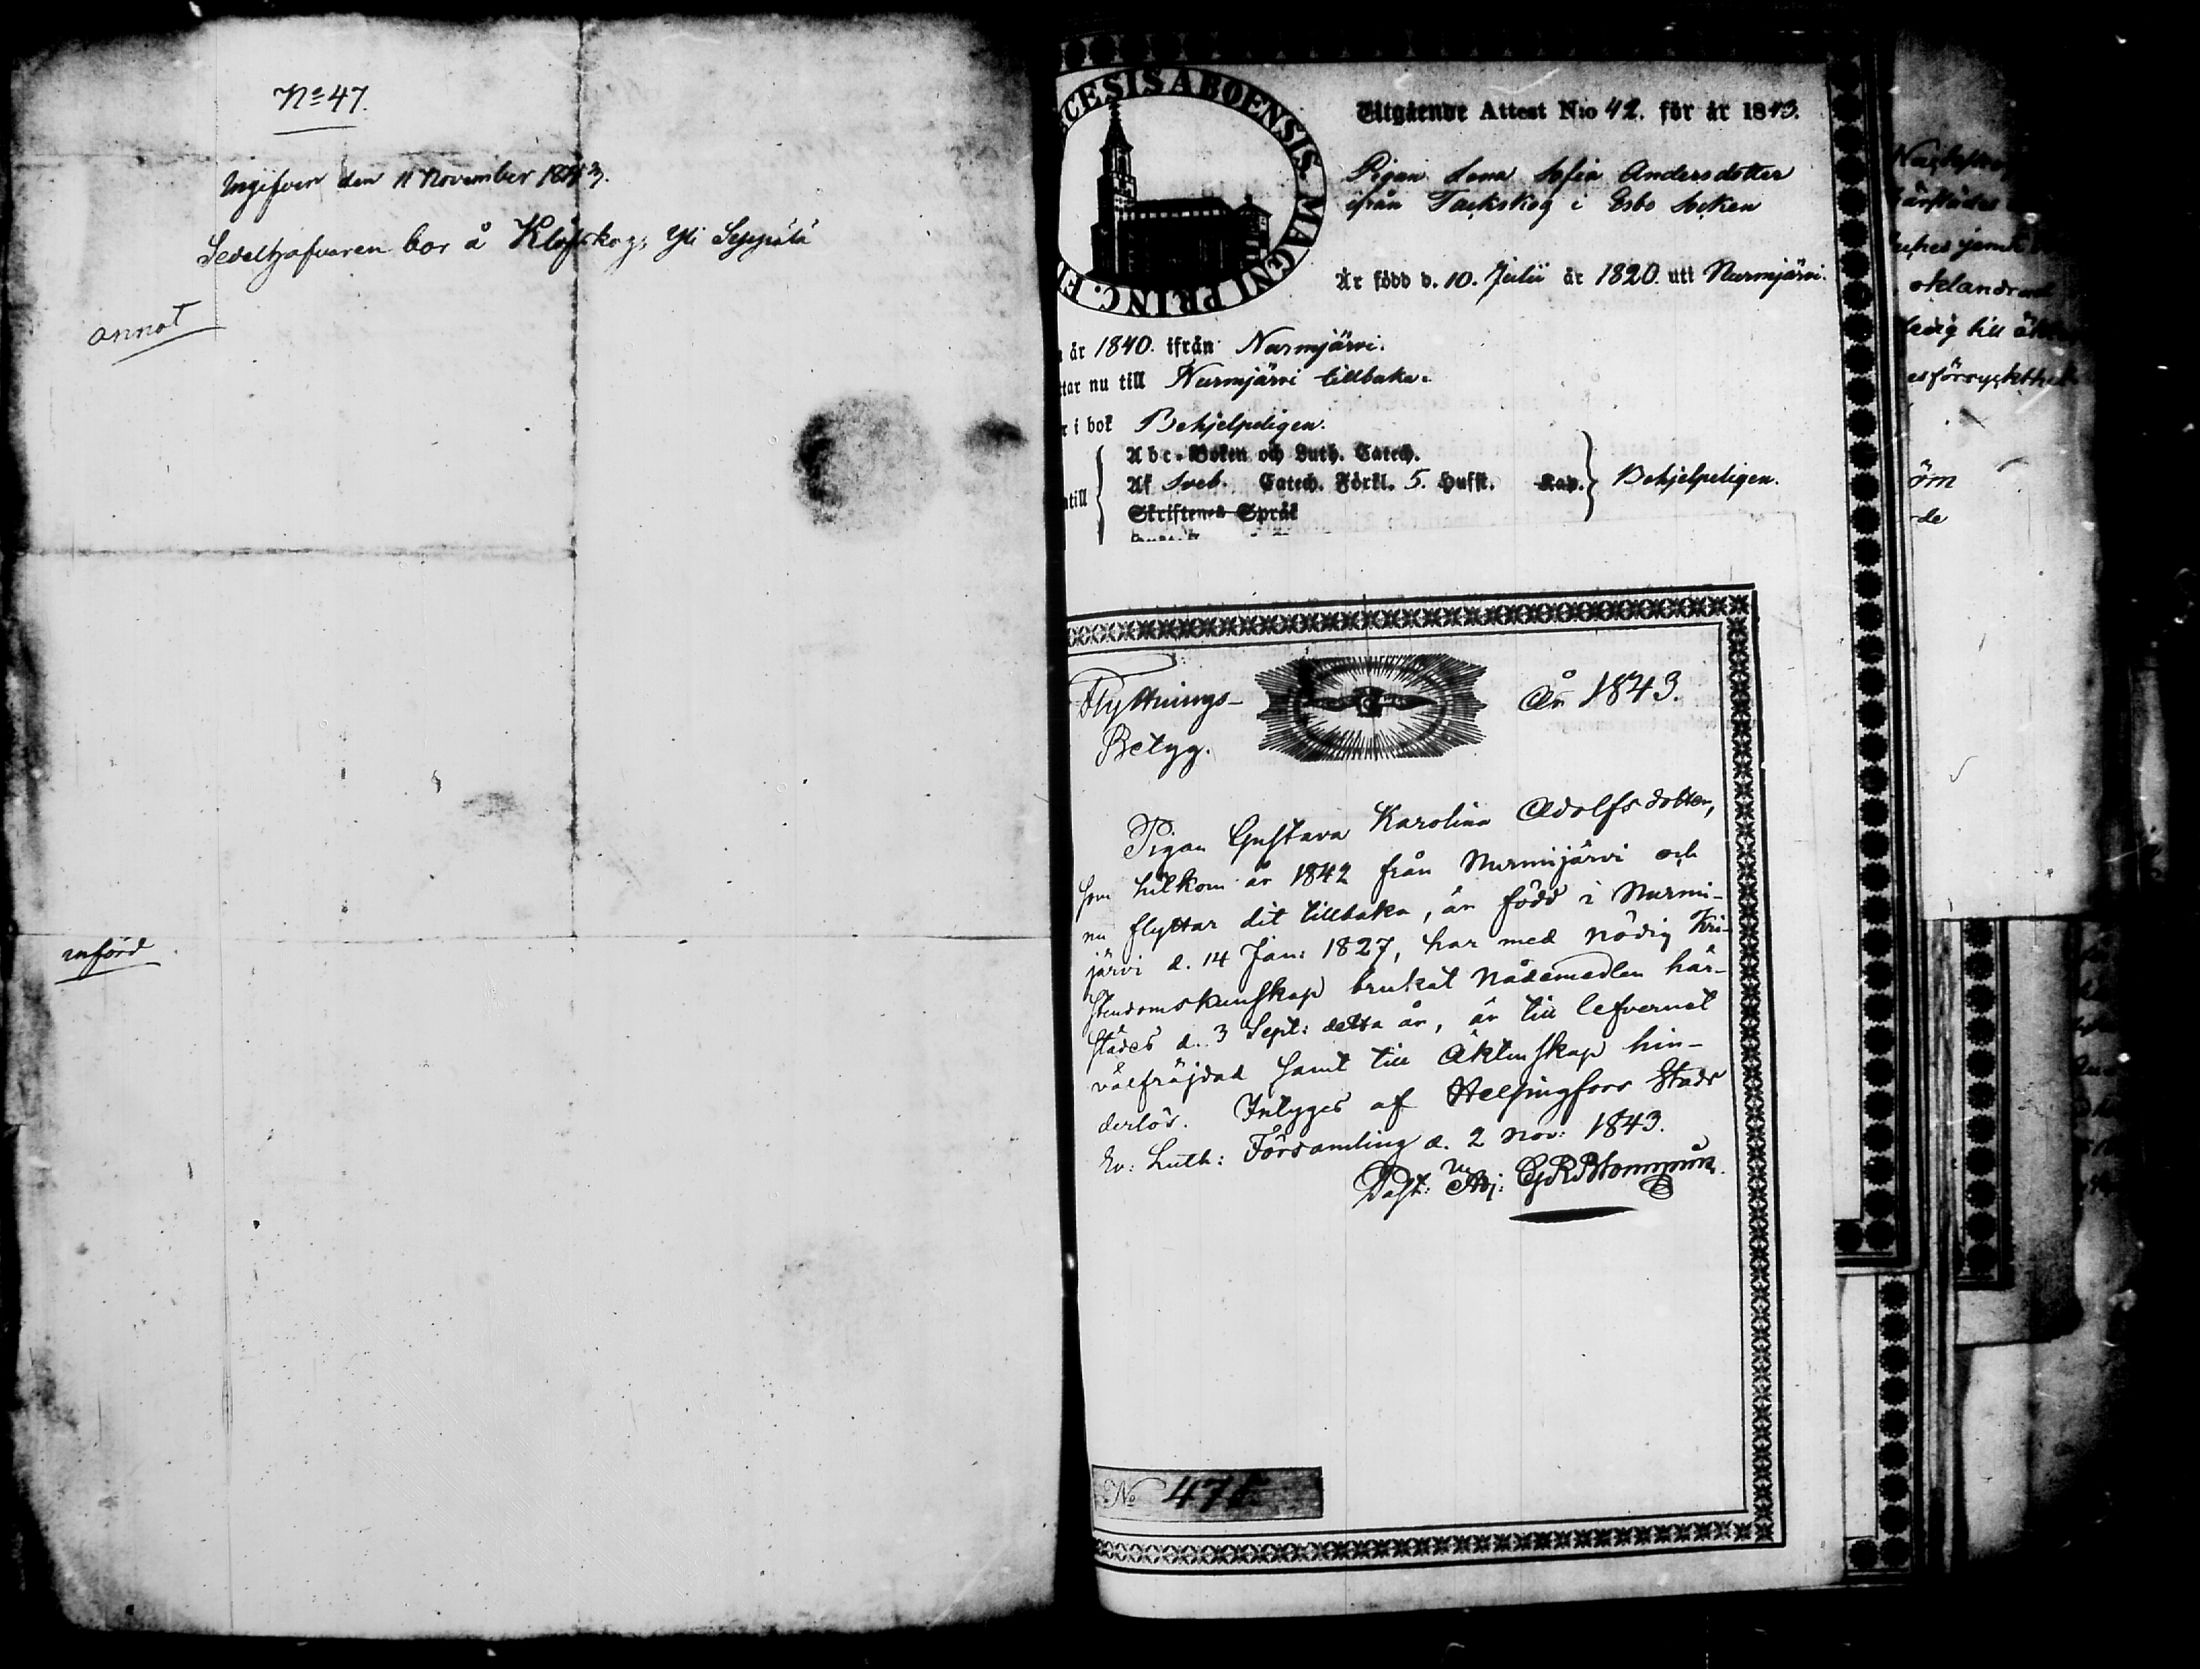 No 47.
Ingifven den 11 November 1843.
Sedelhafvaren bor å Klöfskog, Yli Seppälä
annot
införd
CESIS ABOENSIS. MAGNI PRINC. F
Utgående Attest N:o 42. för år 1843.
Pigan Lena Sofia Andersdotter
ifrån Tackskog i Esbo Socken
Är född d. 10. Julii år 1820. utt Nurmjärvi.
år 1840. ifrån Nurmjärvi.
ttar nu till Nurmjärvi tillbaka.
r i bok Behjelpeligen.
Abc-Boken och Luth. Catech.
Af Sveb. Catech. Förkl. 5. Hufst. Kap. Behjelpeligen.
ntill
Skriftenes Språk
Flyttnings-
Betyg.
År 1843.
Pigan Gustava Karolina Adolfsdotter,
som tillkom år 1842 från Nurmijärvi och
nu flyttar dit tillbaka, är född i Nurmi-
järvi d. 14 Jan: 1827, har med nödig Kri-
stendomskunskap brukat nådemedlen här-
städes d. 3 Sept: detta år, är till lefvernet
välfräjdad samt till Äktenskap hin-
derlös. Intygas af Helsingfors Stads
Ev: Luth: Församling d. 2 Nov: 1843.
Past: Adj:
No 475
öm
de